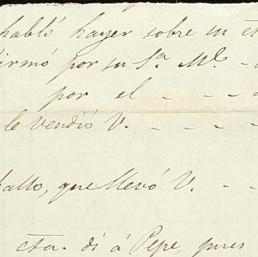 habló hayer sobre su cta
firmó por su Sa. Me. - -
por el - - -
le vendió V. - - -
allo, que llevó V. - -
cta. di á Pepe, pues